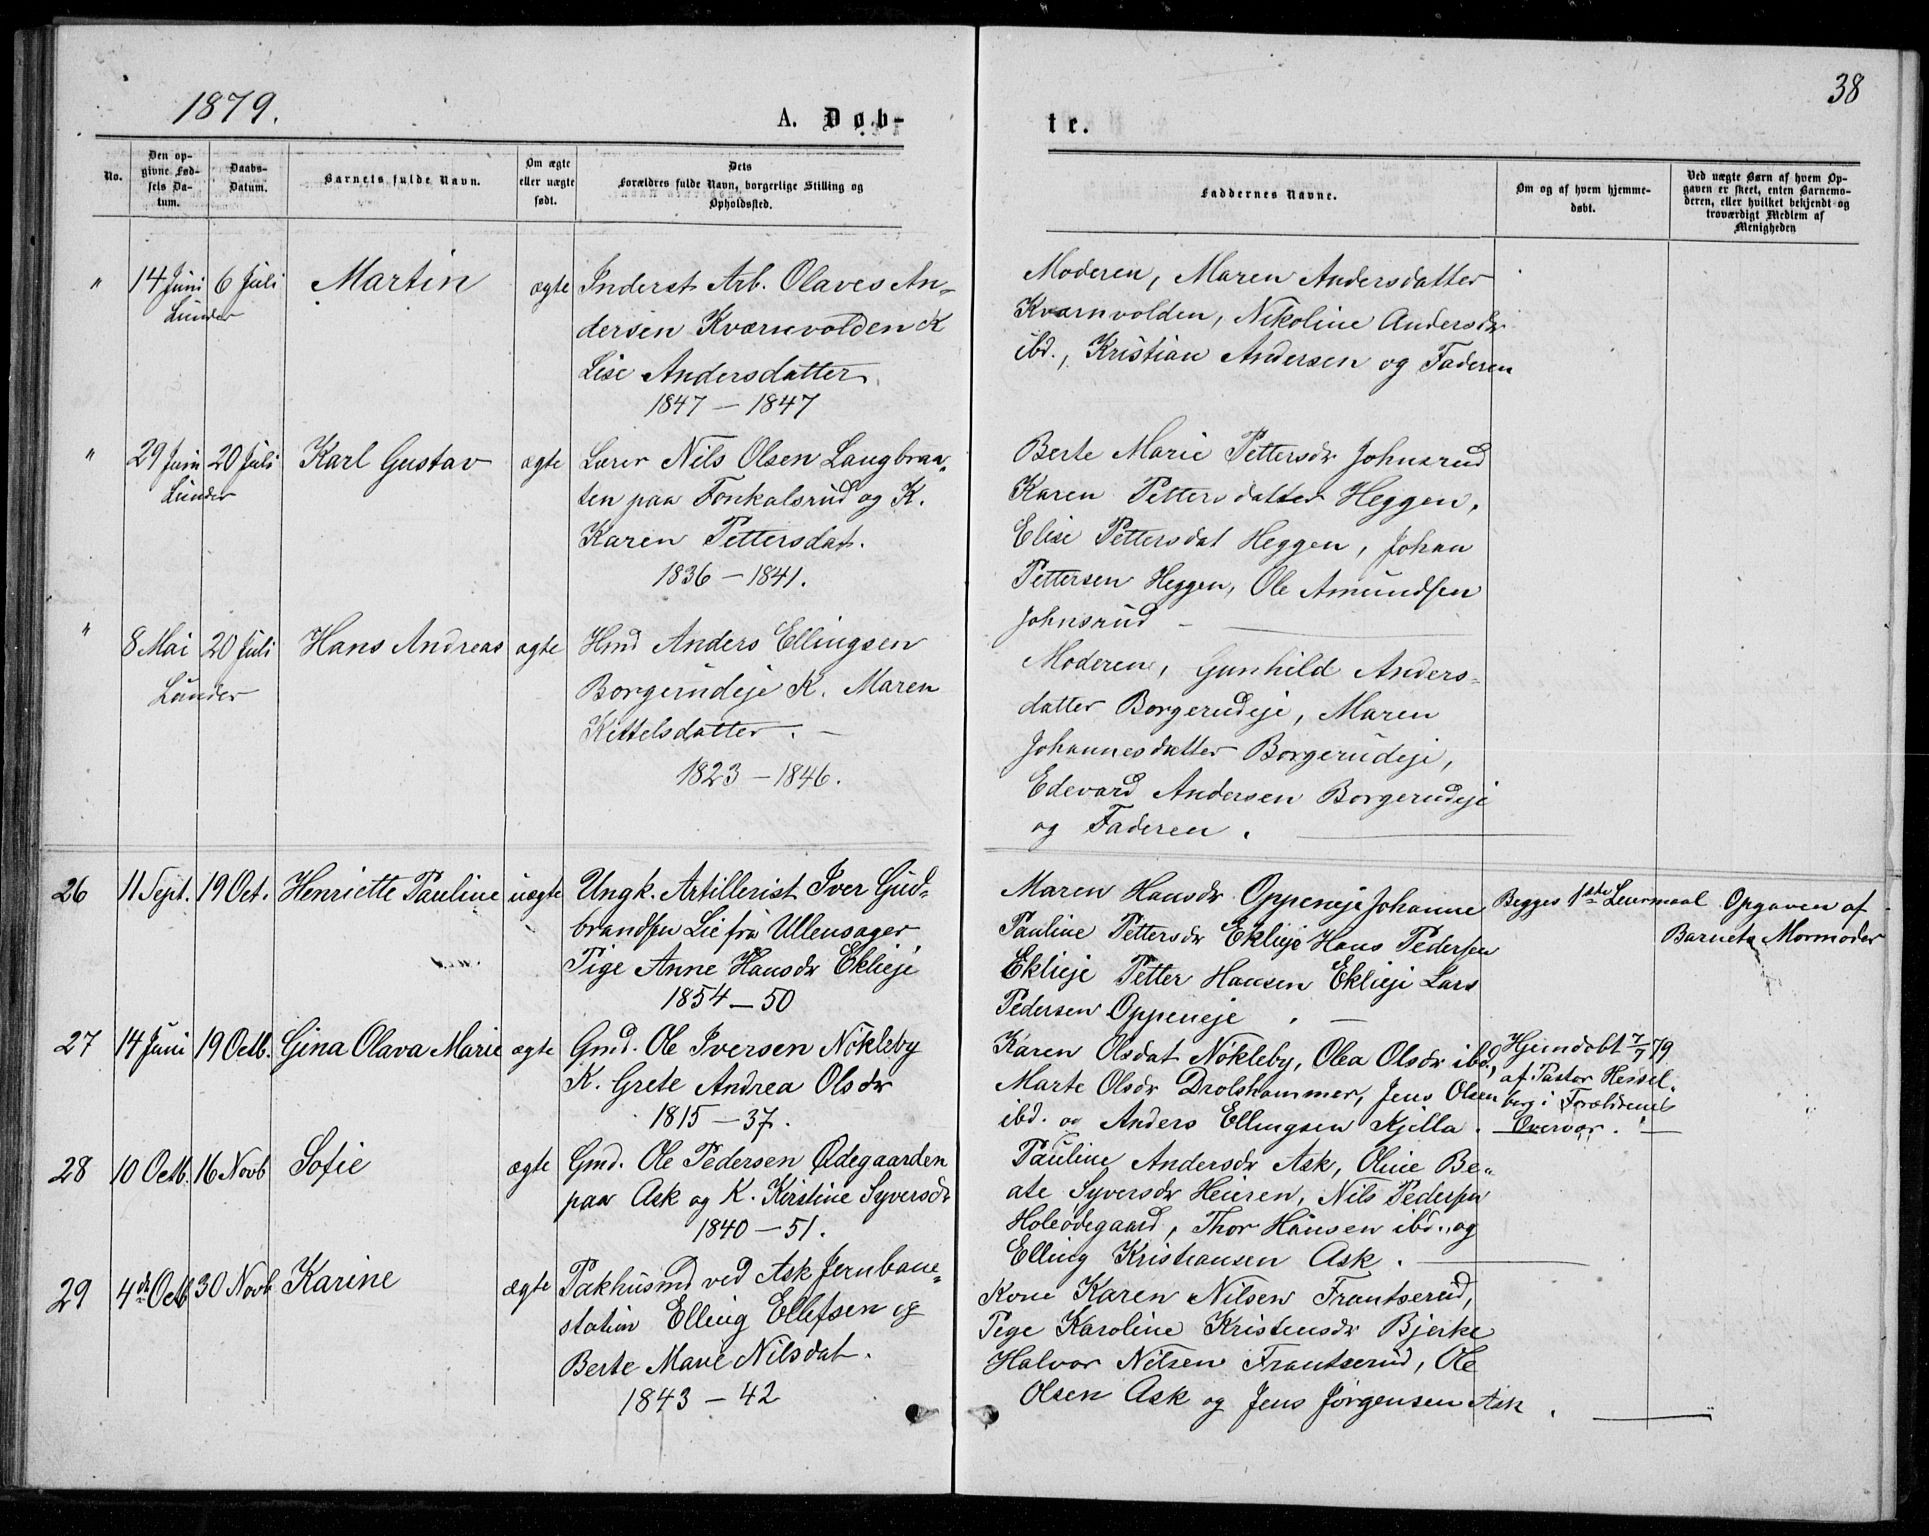 1879.
38
A. Døb-
te.
No.
Den op-
givne Fød-
sels Da-
tum.
Daabs-
Datum.
Barnets fulde Navn.
Om ægte
eller uægte
født.
Dets
Forældres fulde Navn, borgerlige Stilling og
Opholdssted.
Faddernes Navne.
Om og af hvem hjemme-
døbt.
Ved uægte Børn af hvem Op-
gaven er skeet, enten Barnemo-
deren, eller hvilket bekjendt og
troværdigt Medlem af
Menigheden
" 14 Juni 6 Juli Martin ægte Inderst Arb. Olaves An-
Lunder
dersen Kværnvolden K
Lise Andersdatter.
1847 - 1847
Moderen, Maren Andersdatter
Kværnvolden, Nikoline Andersdr
ibd., Kristian Andersen og Faderen
" 29 Juni 20 Juli Karl Gustav ægte Lærer Nils Olsen Langbraa-
Lunder
ten paa Fonkalsrud og K.
Karen Pettersdat.
1836 - 1841.
Berte Marie Pettersdr Johnsrud
Karen Pettersdatter Heggen,
Elise Pettersdat Heggen, Johan
Pettersen Heggen, Ole Amundsen
Johnsrud -
" 8 Mai 20 Juli Hans Andreas ægte Hmd Anders Ellingsen
Lunder
Borgerudeje K. Maren
Kittelsdatter. -
1823 - 1846.
Moderen, Gunhild Anders-
datter Borgerudeje, Maren
Johannesdatter Borgerudeje,
Edevard Andersen Borgerudeje
og Faderen.
26 11 Sept. 19 Oct. Henriette Pauline uægte Ungk. Artillerist Iver Gud-
brandsen Lie fra Ullensager
Pige Anne Hansdr Eklieje
1854 - 50
Maren Hansdr Oppeneje Johanne
Pauline Pettersdr Eklieje Hans Pedersen
Eklieje Petter Hansen Eklieje Lars
Pedersen Oppeneje. -
Begges 1ste Leiermaal
Opgaven af
Barnets Mormoder
27 14 Juni 19 Octb. Gina Olava Marie ægte Gmd. Ole Iversen Nökleby
K. Grete Andrea Olsdr
1815 - 37.
Karen Olsdat Nökleby, Olea Olsdr ibd.,
Marte Olsdr Drolshammer, Jens Olsen
ibd. og Anders Ellingsen Kjella.
Hjemdøbt 7/7 79
af Pastor Hessel-
berg i Forældrenes
Overvær.
28 10 Octb. 16 Novb Sofie ægte Gmd. Ole Pedersen Ødegaarden
paa Ask og K. Kirstine Syversdr
1840 - 51.
Pauline Andersdr Ask, Oline Be-
ate Syversdr Heieren, Nils Pedersen
Holeödegaard, Thor Hansen ibd. og
Elling Kristiansen Ask.
29 4de Octb 30 Novb Karine ægte Pakhusmd ved Ask Jernbane-
station Elling Ellefsen og
Berte Marie Nilsdat.
1843 - 42
Kone Karen Nilsen Frantserud,
Pige Karoline Kristensdr Bjerke
Halvor Nilsen Frantserud, Ole
Olsen Ask og Jens Jørgensen Ask.